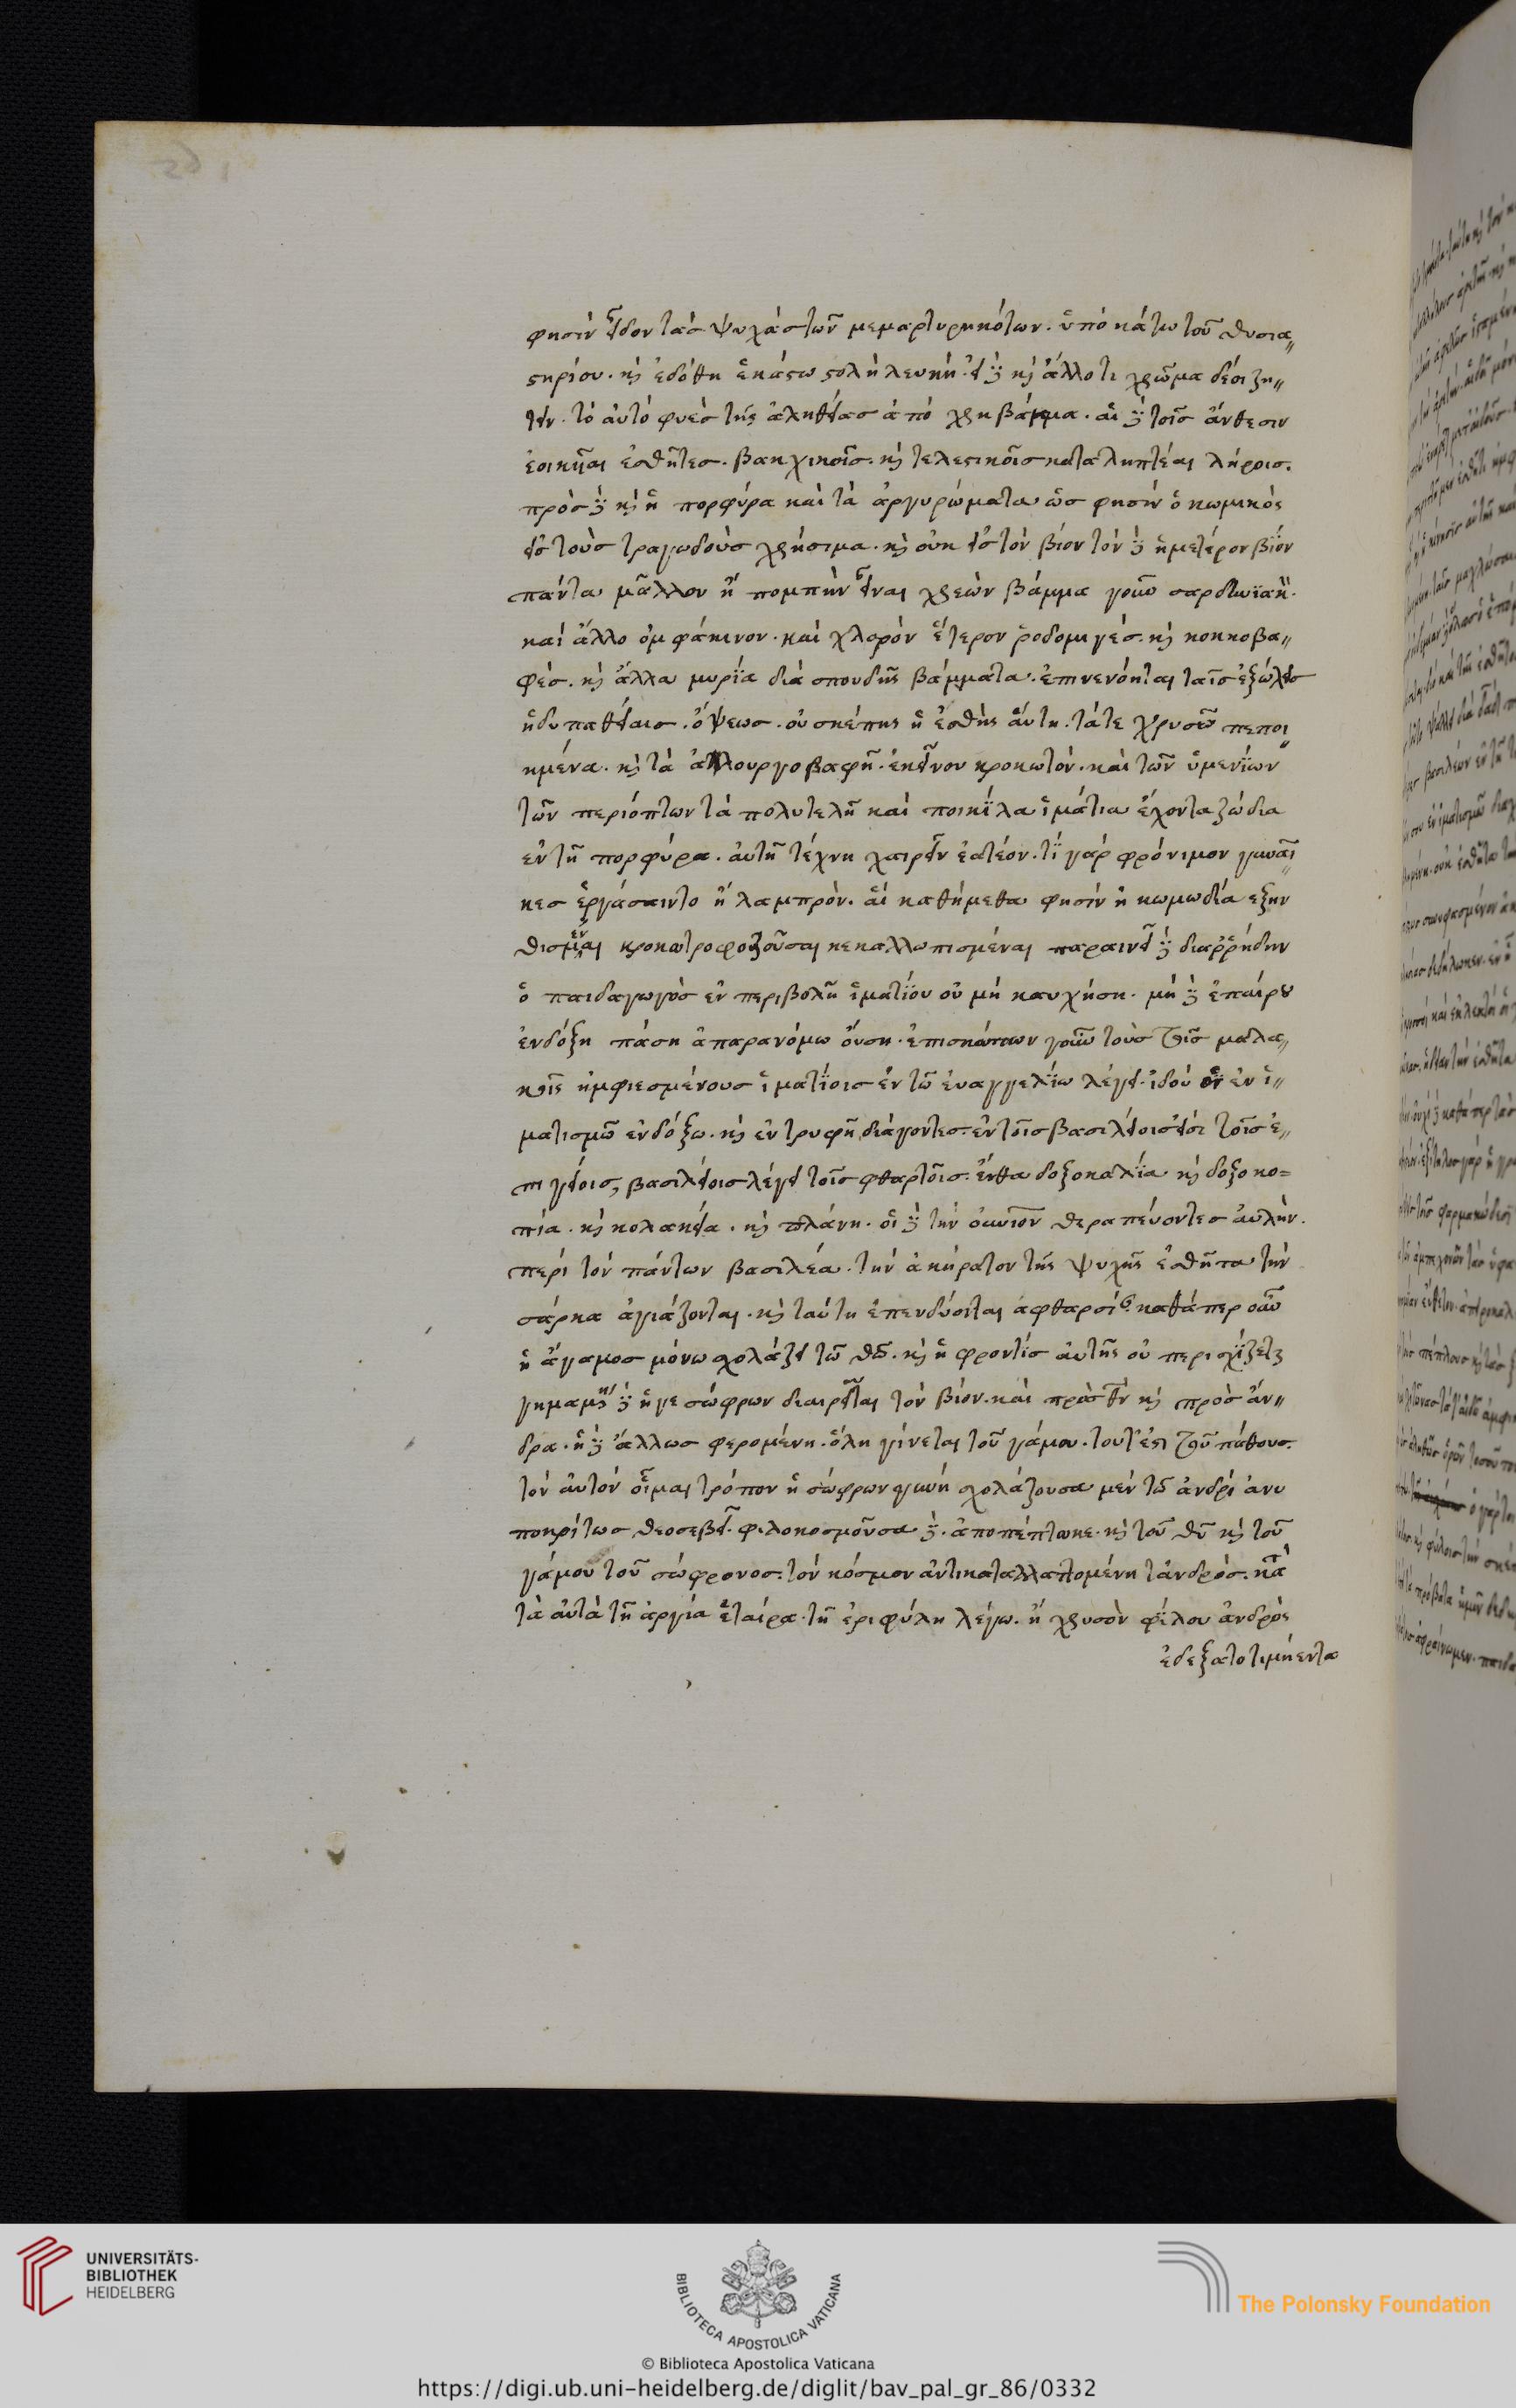 φησὶν εἶδον τὰς ψυχὰς τῶν μεμαρτυρηκότων. ὑπὸ κάτω τοῦ θυσια„
στηρίου. κ̀ ἐδόθη ἑκάστω στολὴ λευκή. εἰ δὲ κ̀ ἄλλο τι χρῶμα δέοι ζη„
τεῖν. τὸ αὐτὸ φυὲς τῆς ἀληθείας ἀπὸ χρη βάμμα. αἱ δὲ τοῖς ἄνθεσιν
ἐοικῆαι ἐσθῆτες. βακχικοῖς. κ̀ τελεστικοῖς καταλειπτέαι λήροις.
πρὸς δὲ κ̀ ἡ πορφύρα καὶ τὰ ἀργυρώματα ὥς φησὶν ὁ κωμικὸς
εἰς τοὺς τραγωδοὺς χρήσιμα. κ̀ οὐκ εἰς τὸν βίον τὸν δὲ ἡμετέρον βίον
πάντα μᾶλλον ἢ πομπὴν εἶναι χρεὼν βάμμα γοῦν σαρδωνϊακὴ.
καὶ ἄλλο ὀμφάκινον. καὶ χλορὸν ἕτερον ῥοδομιγές. κ̀ κοκκοβα„
φές. κ̀ ἄλλα μυρΐα διὰ σπουδῆς βάμματα. ἐπινενόηται ταῖς ἐξώλεις
ἡδυπαθείαις. ὄψεως. οὐ σκέπης ἡ ἐσθὴς ἅυτη. τά τε χρυσῶ πεποι„
ημένα. κ̀ τὰ ἁλουργοβαφῆ. ἐκεῖνον κροκωτόν. καὶ τῶν ὑμενΐων
τῶν περιόπτων τὰ πολυτελῆ καὶ ποικΐλα ἱμάτια ἔχοντα ζώδια
ἐν τῆ πορφύρα. ἀυτῆ τέχνη χαιρεῖν ἐατέον. τΐ γὰρ φρόνιμον γυναῖ„
κες ἐργάσαιντο ἢ λαμπρὸν. ἃι καθήμεθα φησὶν ἡ κωμωδία εξην
θισμέναι κροκωτροφοροῦσαι κεκαλλωπισμέναι παραινεῖ δὲ διαῤῥήδην
ὁ παιδαγωγὸς ἐν περιβολῆ ἱματΐου οὐ μὴ καυχήση. μὴ δὲ ἐπαίρου
ἐνδόξη πάση ἀπαρανόμω ὄυση. ἐπισκώπτων γοῦν τοὺς τοῖς μαλα„
κοῖς ἠμφιεσμένους ἱματΐοις ἐν τῶ ἐυαγγελΐω λέγει. ἰδοὺ οἱ ἐν ἱ„
ματισμῶ ἐνδόξω. κ̀ ἐν τρυφῆ διάγοντες. ἐν τοῖς βασιλείοις εἰσὶ τοῖς ἐ„
πιγείοις, βασιλείοις λέγει τοῖς φθαρτοῖς. ἔνθα δοξοκαλΐα κ̀ δοξοκο=
πία. κ̀ κολακεία. κ̀ πλάνη. οἱ δὲ τὴν οὐράνιον θεραπεύοντες ἀυλὴν.
περὶ τὸν πάντων βασιλέα. τὴν ἀκήρατον τῆς ψυχῆς ἐσθῆτα τὴν
σάρκα ἁγιάζονται. κ̀ ταύτη ἐπενδύονται ἀφθαρσίαν καθάπερ οὖν
ἡ ἄγαμος μόνω σχολάζει τῶ θῶ. κ̀ ἡ φροντὶς ἀυτῆς οὐ περισχΐζεται
γημαμένη δὲ ἥ γε σώφρων διαιρεῖται τὸν βίον. καὶ πρὸς θν κ̀ πρὸς ἄν„
δρα. ἡ δὲ ἄλλως φερομένη. ὅλη γίνεται τοῦ γάμου. τουτέστι τοῦ πάθους.
τὸν ἀυτὸν οἶμαι τρόπον ἡ σώφρων γυνὴ σχολάζουσα μὲν τῶ ἀνδρὶ ἀνυ
ποκρίτως θεοσεβεῖ. φιλοκοσμοῦσα δὲ. ἀποπέπτωκε. κ̀ τοῦ θῦ κ̀ τοῦ
γάμου τοῦ σώφρονος. τὸν κόσμον ἀντικαταλλαττομένη τἀνδρός. κατὰ
τὰ ἀυτὰ τῆ ἀργία ἑταίρα. τῆ ἐριφύλη λέγω. ἣ χρυσὸν φΐλου ἀνδρὸς
ἐδέξατο τιμήεντα
UNIVERSITÄTS-
BIBLIOTHEK
HEIDELBERG
BIBLIOTECA APOSTOLICA VATICANA
The Polonsky Foundation
© Biblioteca Apostolica Vaticana
https://digi.ub.uni-heidelberg.de/diglit/bav_pal_gr_86/0332